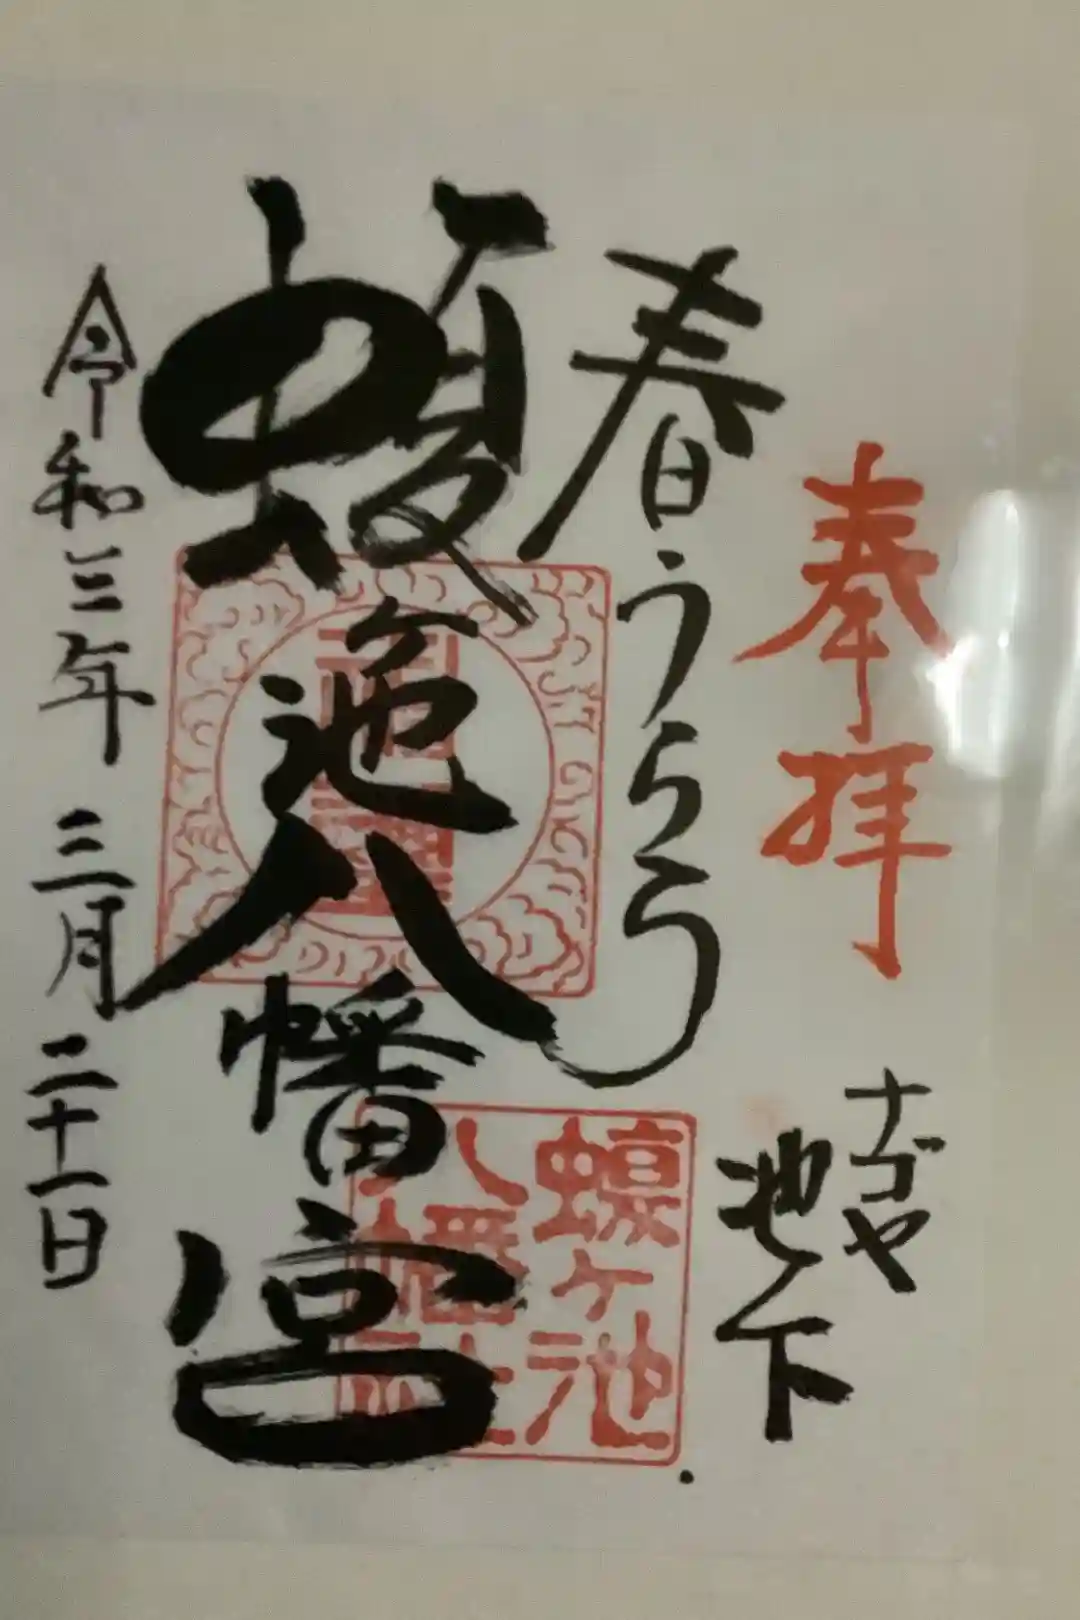 奉拝
ナゴヤ
池下
春うらら
蝮ヶ池八幡宮
蝮ヶ池
八幡社
令和三年 三月 二十一日